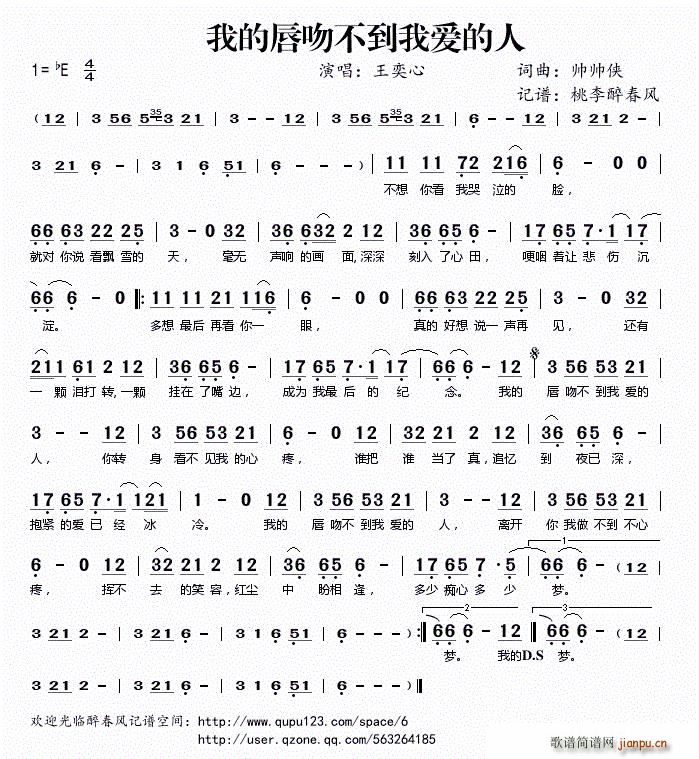 我的唇吻不到我爱的人
1=♭E 4/4 演唱：王奕心 词曲：帅帅侠
记谱：桃李醉春风
( 12 | 3 56 5 35 3 21 | 3 - - 12 | 3 56 5 35 3 21 | 6 - - 12 | 3 21 2 - |
3 21 6 - | 3 1 6 51 | 6 - - - ) | 11 11 72 216 | 6 - 0 0 |
不想 你看 我哭 泣的 脸，
66 63 22 25 | 3 - 0 32 | 36 632 2 12 | 36 65 6 - | 17 65 7·1 17 |
就对 你说 看飘 雪的 天， 毫无 声响 的画 面,深深 刻入 了心 田， 哽咽 着让 悲 伤 沉
66 6 - 0 |: 11 11 21 116 | 6 - 0 0 | 66 63 22 25 | 3 - 0 32 |
淀。 多想 最后 再看 你一 眼， 真的 好想 说一 声再 见， 还有
211 61 2 12 | 36 65 6 - | 17 65 7·1 17 | 66 6 - 12 | 3 56 53 21 |
一 颗 泪打 转,一颗 挂在 了嘴 边， 成为 我最 后 的 纪 念。 我的 唇 吻不 到我 爱的
3 - - 12 | 3 56 53 21 | 6 - 0 12 | 3 21 2 12 | 36 65 6 - |
人， 你转 身 看不 见我 的心 疼， 谁把 谁 当了 真,追忆 到 夜已 深，
17 65 7·1 121 | 1 - 0 12 | 3 56 53 21 | 3 - 0 12 | 3 56 53 21 |
抱紧 的爱 已 经 冰 冷。 我的 唇 吻不 到我 爱的 人， 离开 你 我做 不到 不心
6 - 0 12 | 32 21 2 12 | 36 65 6 - | 17 65 7·5 | 1 66 6 - (12 |
疼， 挥不 去 的笑 容,红尘 中 盼相 逢， 多少 痴心 多 少 梦。
3 21 2 - | 3 21 6 - | 3 1 6 51 | 6 - - - ) :| 2 66 6 - 12 | 3 66 6 - (12 |
梦。 我的D.S 梦。
3 21 2 - | 3 21 6 - | 3 1 6 51 | 6 - - - ) ‖
欢迎光临醉春风记谱空间：http://www.qupu123.com/space/6
http://user.qzone.qq.com/563264185
歌谱简谱网 jianpu.cn